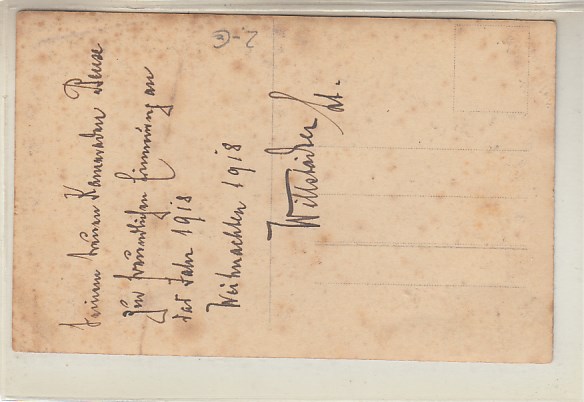 Seinem treuen Kameraden
zur freundlichen Erinnerung an
das Jahr 1918
Weihnachten 1918
Willstädter
Lt.
2-